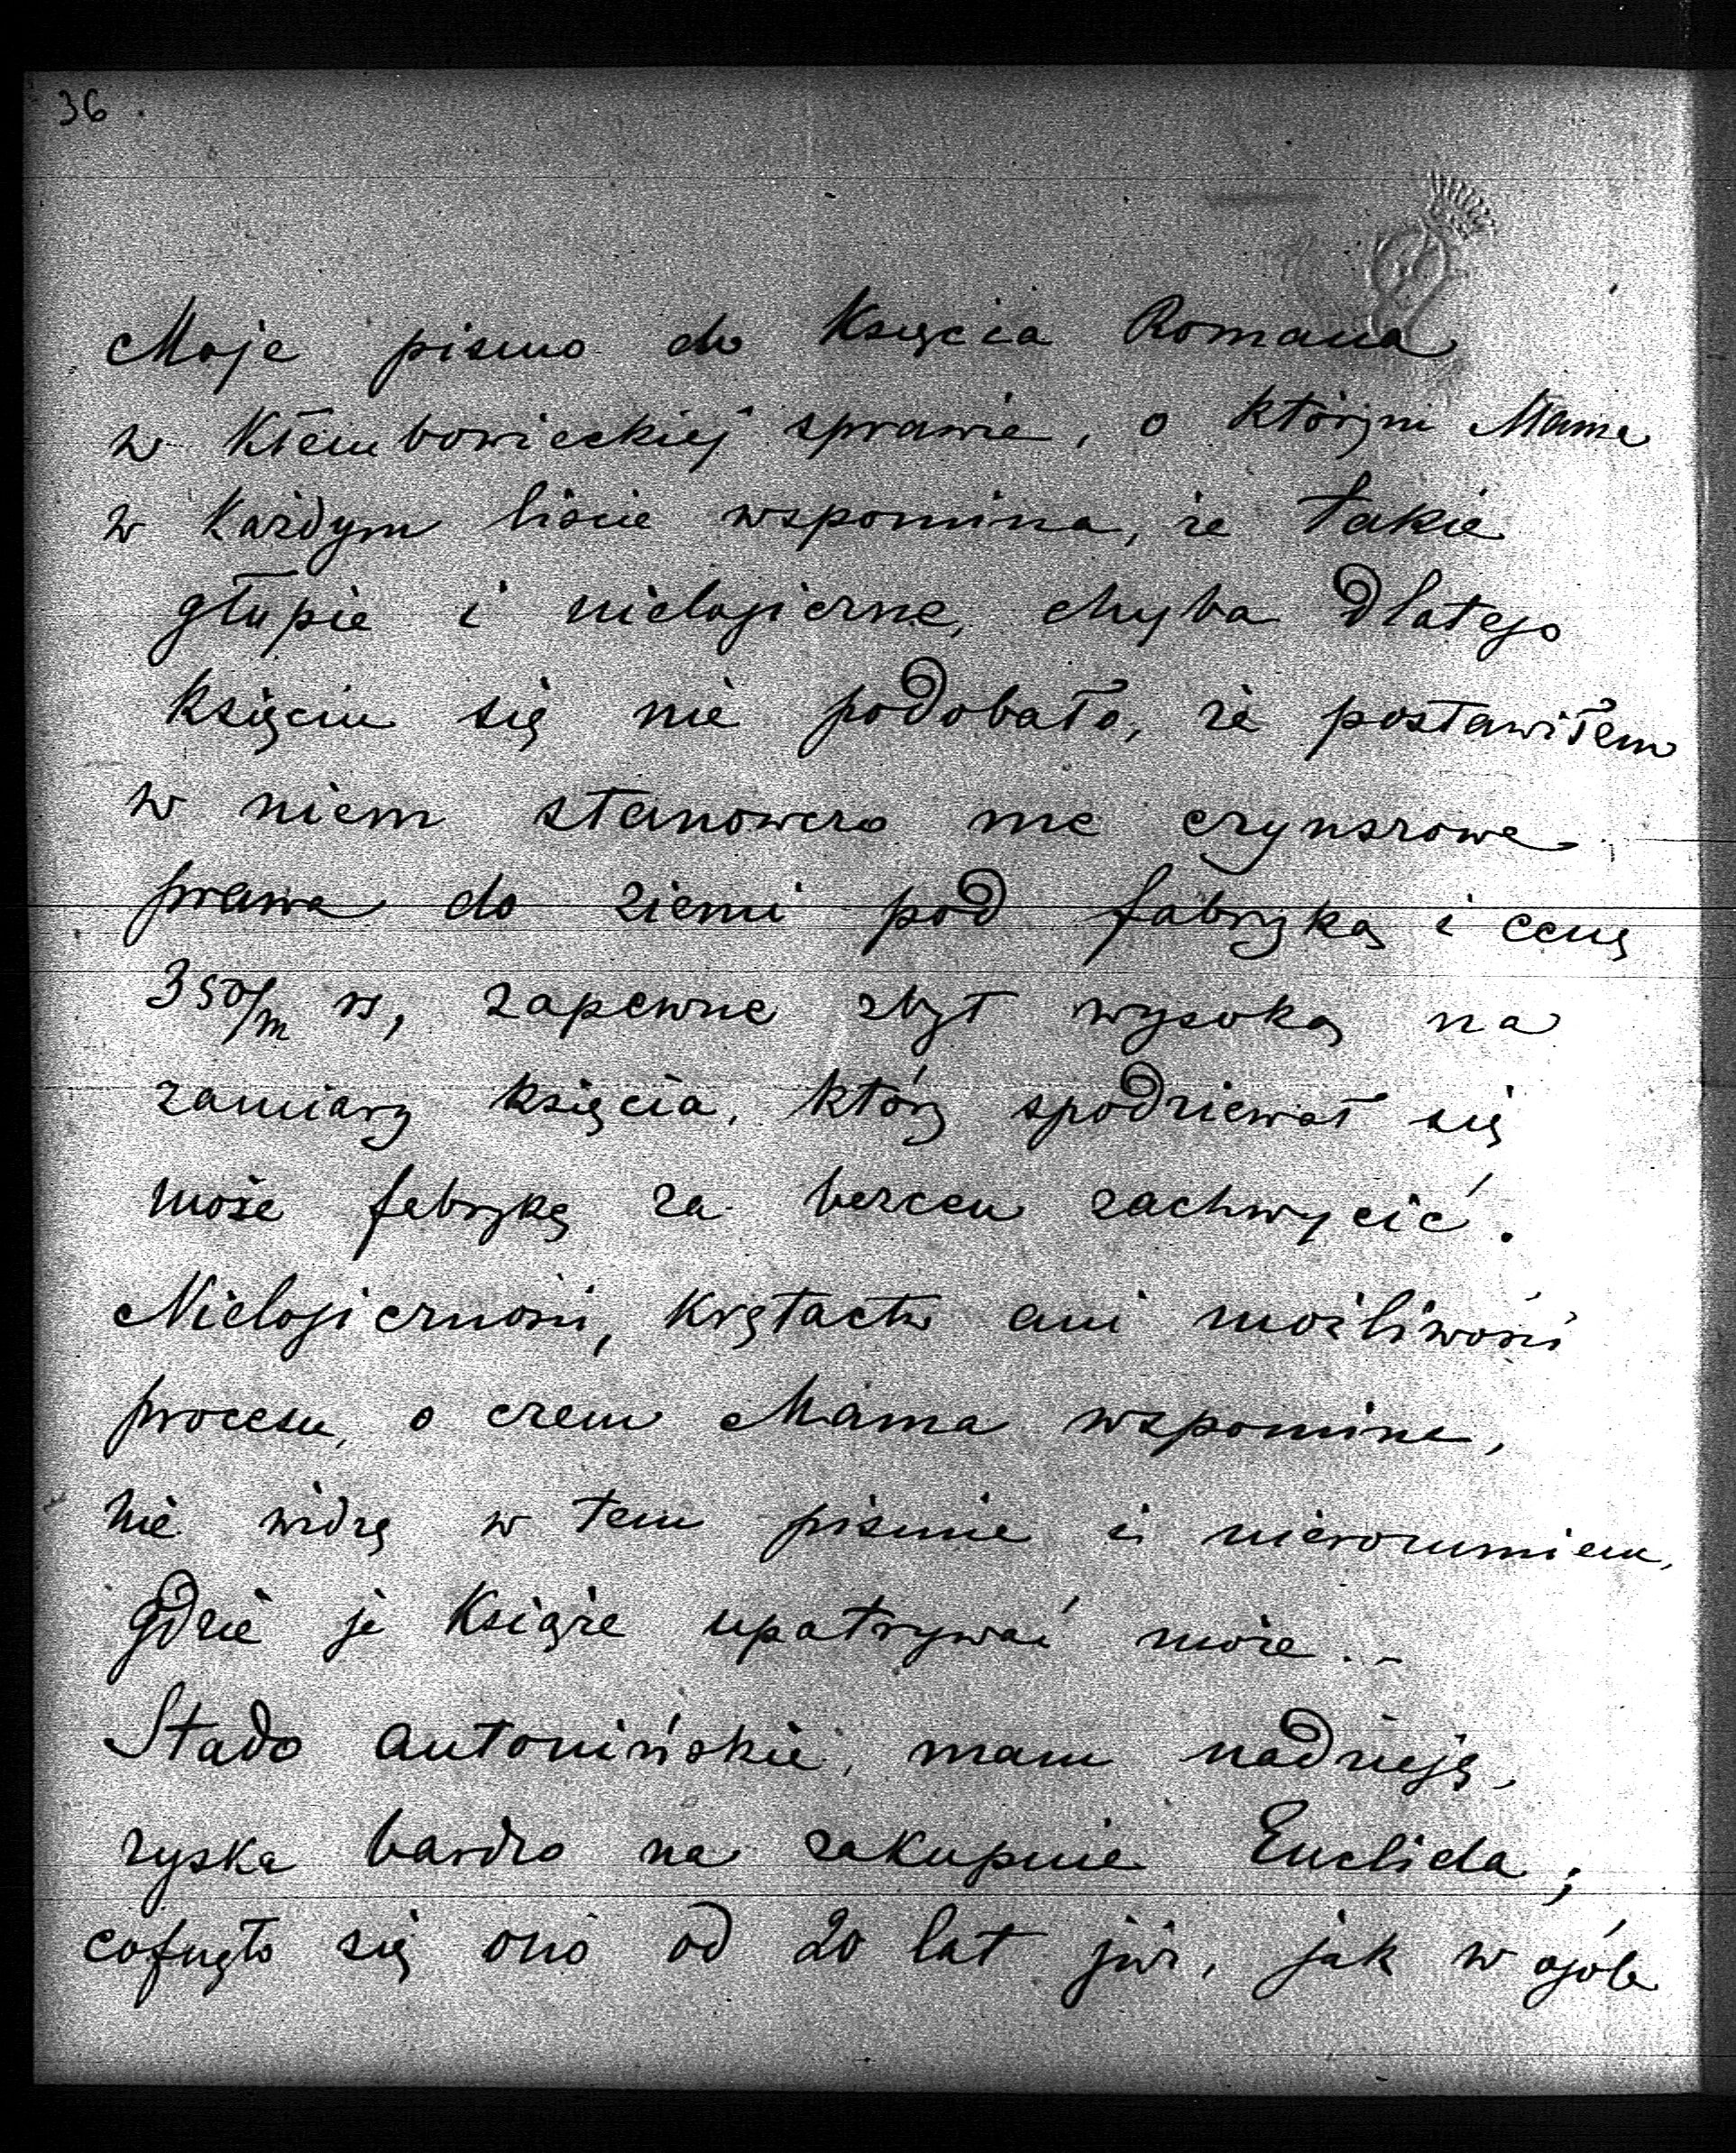 36
Moje pismo do Księcia Romana
w Kłembowieckiej sprawie, o którym Mama
w każdym liście wspomina, że takie
głupie i nielogiczne, chyba dlatego
księciu się nie podobało, że postawiłem
w niem stanowczo me czynszowe
prawa do ziemi pod fabryką i cenę
350/m rs, zapewne zbyt wysoką na
zamiary księcia, który spodziewał się
może fabrykę za bezcen zachwycić.
Nielogiczności, krętactw ani możliwości
procesu, o czem Mama wspomina,
nie widzę w tem piśmie i nierozumiem,
gdzie je Książe upatrywać może.-
Stado antonińskie, mam nadzieję,
zyska bardzo na zakupnie Euclida;
cofnęło się ono od 20 lat już, jak w ogóle